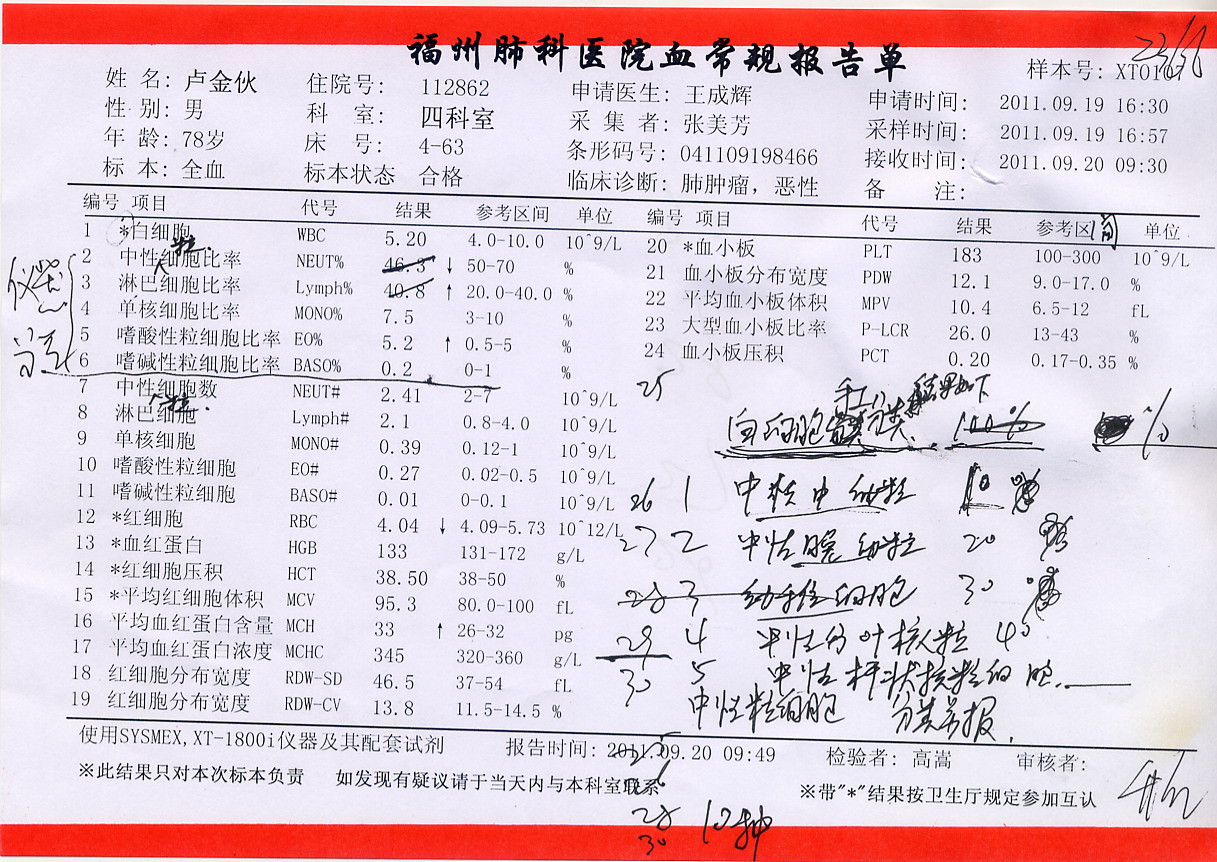 福州肺科医院血常规报告单
姓 名: 卢金伙 住院号: 112862 申请医生: 王成辉 样本号: XT01
性 别: 男 科 室: 四科室 采 集 者: 张美芳 申请时间: 2011.09.19 16:30
年 龄: 78岁 床 号: 4-63 条形码号: 041109198466 采样时间: 2011.09.19 16:57
标 本: 全血 标本状态 合格 临床诊断: 肺肿瘤, 恶性 接收时间: 2011.09.20 09:30
备 注:
编号 项目 代号 结果 参考区间 单位 编号 项目 代号 结果 参考区间 单位
1 *白细胞 WBC 5.20 4.0-10.0 10^9/L 20 *血小板 PLT 183 100-300 10^9/L
2 中性细胞比率 NEUT% 46.3 ↓ 50-70 % 21 血小板分布宽度 PDW 12.1 9.0-17.0 %
3 淋巴细胞比率 Lymph% 40.8 ↑ 20.0-40.0 % 22 平均血小板体积 MPV 10.4 6.5-12 fL
4 单核细胞比率 MONO% 7.5 3-10 % 23 大型血小板比率 P-LCR 26.0 13-43 %
5 嗜酸性粒细胞比率 EO% 5.2 ↑ 0.5-5 % 24 血小板压积 PCT 0.20 0.17-0.35 %
6 嗜碱性粒细胞比率 BASO% 0.2 0-1 %
7 中性细胞数 NEUT# 2.41 2-7 10^9/L 25
8 淋巴细胞 Lymph# 2.1 0.8-4.0 10^9/L
手工 结果如下
白细胞分类 100% %
9 单核细胞 MONO# 0.39 0.12-1 10^9/L
10 嗜酸性粒细胞 EO# 0.27 0.02-0.5 10^9/L
11 嗜碱性粒细胞 BASO# 0.01 0-0.1 10^9/L 26 1 中性中幼粒 10
12 *红细胞 RBC 4.04 ↓ 4.09-5.73 10^12/L
13 *血红蛋白 HGB 133 131-172 g/L 27 2 中性晚幼粒 20
14 *红细胞压积 HCT 38.50 38-50 %
15 *平均红细胞体积 MCV 95.3 80.0-100 fL 28 3 细胞 30
16 平均血红蛋白含量 MCH 33 ↑ 26-32 pg 29 4 中性分叶核粒 40
17 平均血红蛋白浓度 MCHC 345 320-360 g/L
18 红细胞分布宽度 RDW-SD 46.5 37-54 fL 30 5 中性杆状核粒细胞
19 红细胞分布宽度 RDW-CV 13.8 11.5-14.5 % 中性粒细胞 分类并报
使用SYSMEX,XT-1800i仪器及其配套试剂 报告时间: 2011.09.20 09:49 检验者: 高嵩 审核者:
※此结果只对本次标本负责 如发现有疑议请于当天内与本科室联系
※带"*"结果按卫生厅规定参加互认
28 10种
30